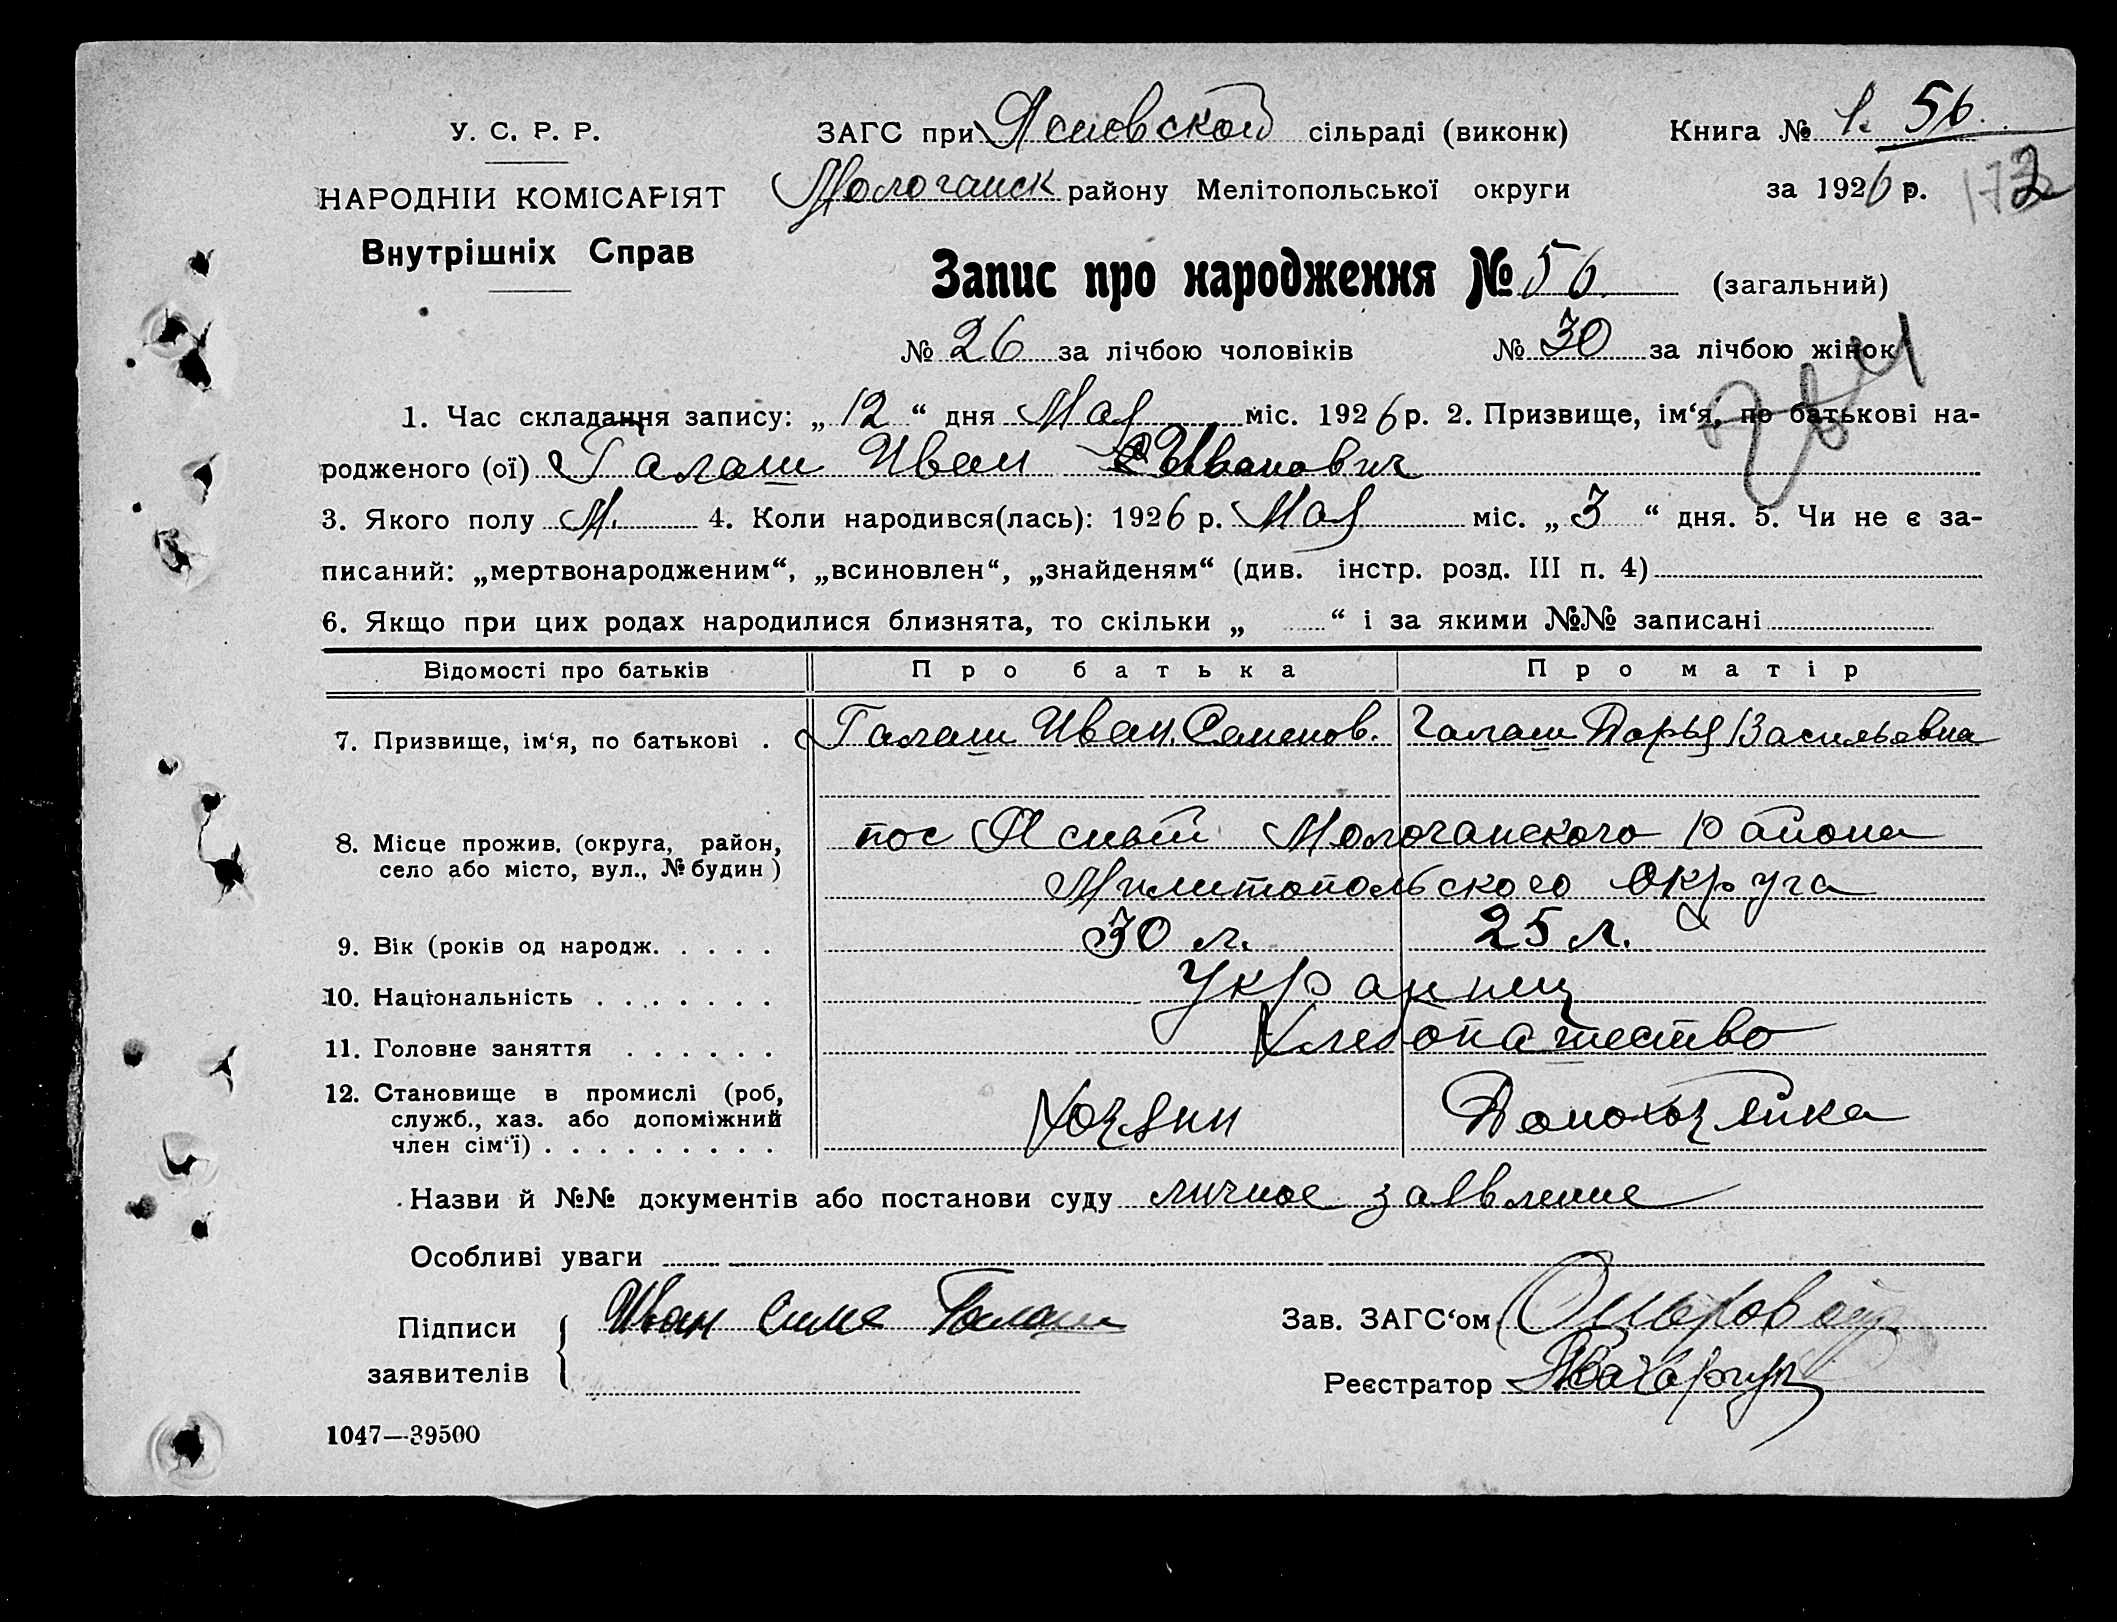 У. С. Р. Р.
НАРОДНІЙ КОМІСАРІЯТ
Внутрішніх Справ
ЗАГС при Ясновской сільраді (виконк)
Мологанск району Мелітопольської округи
Книга № 1. 56.
за 1926 р. 172
Запис про народження № 56 (загальний)
№ 26 за лічбою чоловіків № 30 за лічбою жінок
1. Час складання запису: „ 12 “ дня Мая міс. 1926 р. 2. Призвище, ім‘я, по батькові на-
родженого (ої) Галаш Иван Иванович
3. Якого полу М. 4. Коли народився(лась): 1926 р. Мая міс. „ 3 “ дня. 5. Чи не є за-
писаний: „мертвонародженим“, „всиновлен“, „знайденям“ (див. інстр. розд. III п. 4)
6. Якщо при цих родах народилися близнята, то скільки „ “ і за якими №№ записані
Відомості про батьків Про батька Про матір
7. Призвище, ім‘я, по батькові . Галаш Иван. Семенов. Галаш Дарья Васильевна
8. Місце прожив. (округа, район,
село або місто, вул., № будин )
пос Ясный Мологанского района
Милитопольского округа
9. Вік (років од народж. . . . . 30 л. 25 л.
10. Національність . . . . . . . Украинец
11. Головне заняття . . . . . . Хлебопашество
12. Становище в промислі (роб,
служб., хаз. або допоміжний
член сім‘ї) . . . . . . . . .
Хозяин Домохозяйка
Назви й №№ документів або постанови суду личное заявление
Особливі уваги
Підписи
заявителів
Иван Симе Галаш
Зав. ЗАГС‘ом
Реєстратор
1047—39500